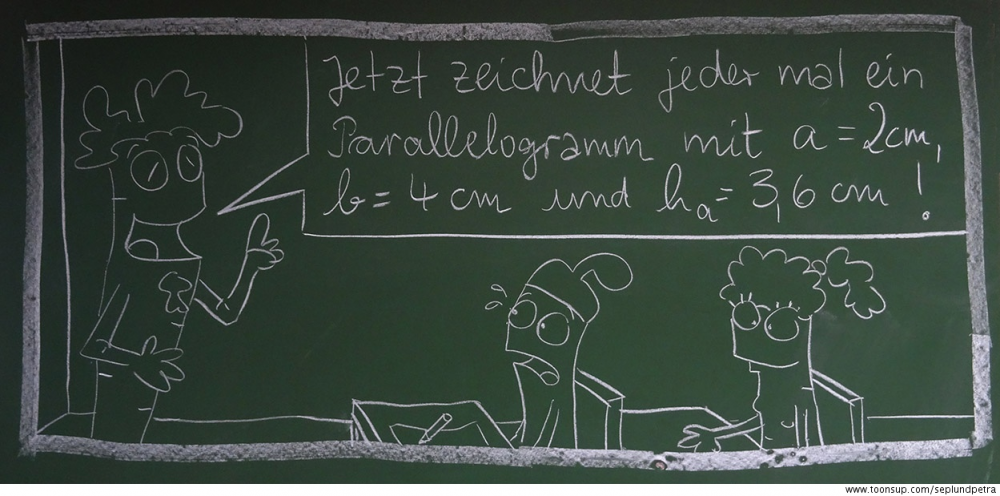 Jetzt zeichnet jeder mal ein
Parallelogramm mit a = 2cm,
b = 4 cm und ha = 3,6 cm !
www.toonsup.com/seplundpetra